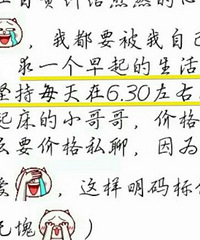 ，我都要被我自己
求一个早起的生活
坚持每天在6.30左右
起床的小哥哥，价格
么要价格私聊，因为
，这样明码标价
愧
）